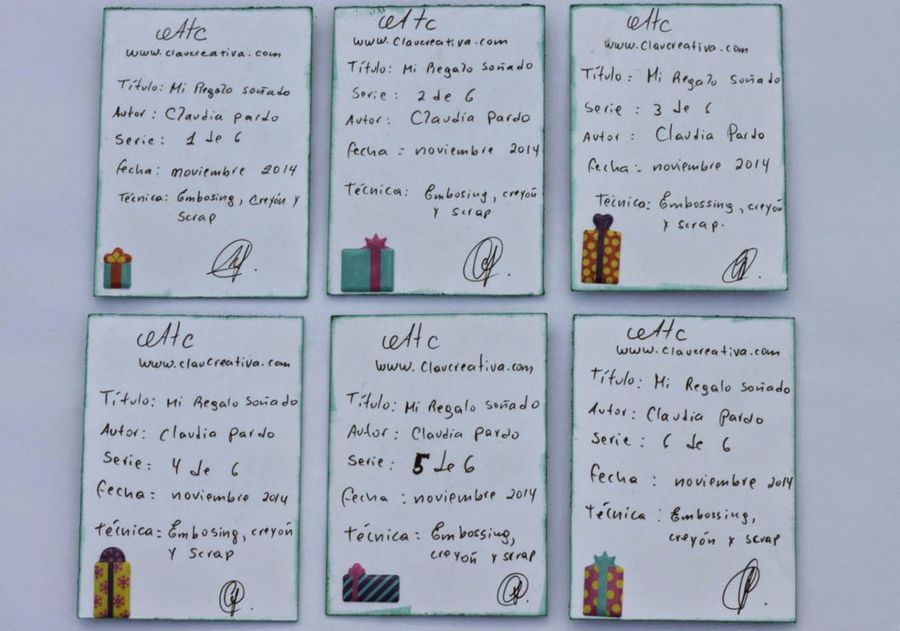 Atc
www.clavcreativa.com
Título: Mi Regalo soñado
Autor: Claudia pardo
Serie: 1 de 6
fecha: noviembre 2014
Técnica: Embosing, creyón y
scrap
Atc
www.clavcreativa.com
Título: Mi Regalo soñado
Serie: 2 de 6
Autor: Claudia Pardo
fecha = noviembre 2014
Técnica: Embosing, creyón
y scrap
Atc
www.clavcreativa.com
Título: Mi Regalo soñado
Serie: 3 de 6
Autor: Claudia Pardo
fecha = noviembre 2014
Técnica: Embossing, creyón
y scrap.
Atc
www.clavcreativa.com
Título: Mi Regalo soñado
Autor: Claudia pardo
Serie: 4 de 6
fecha = noviembre 2014
Técnica: Embosing, creyón
y scrap
Atc
www.clavcreativa.com
Título: Mi Regalo soñado
Autor: Claudia pardo
Serie: 5 de 6
fecha: noviembre 2014
Técnica: Embossing,
creyón y scrap
Atc
www.clavcreativa.com
Título: Mi Regalo soñado
Autor: Claudia Pardo
Serie: 6 de 6
fecha: noviembre 2014
Técnica: Embossing,
creyón y scrap